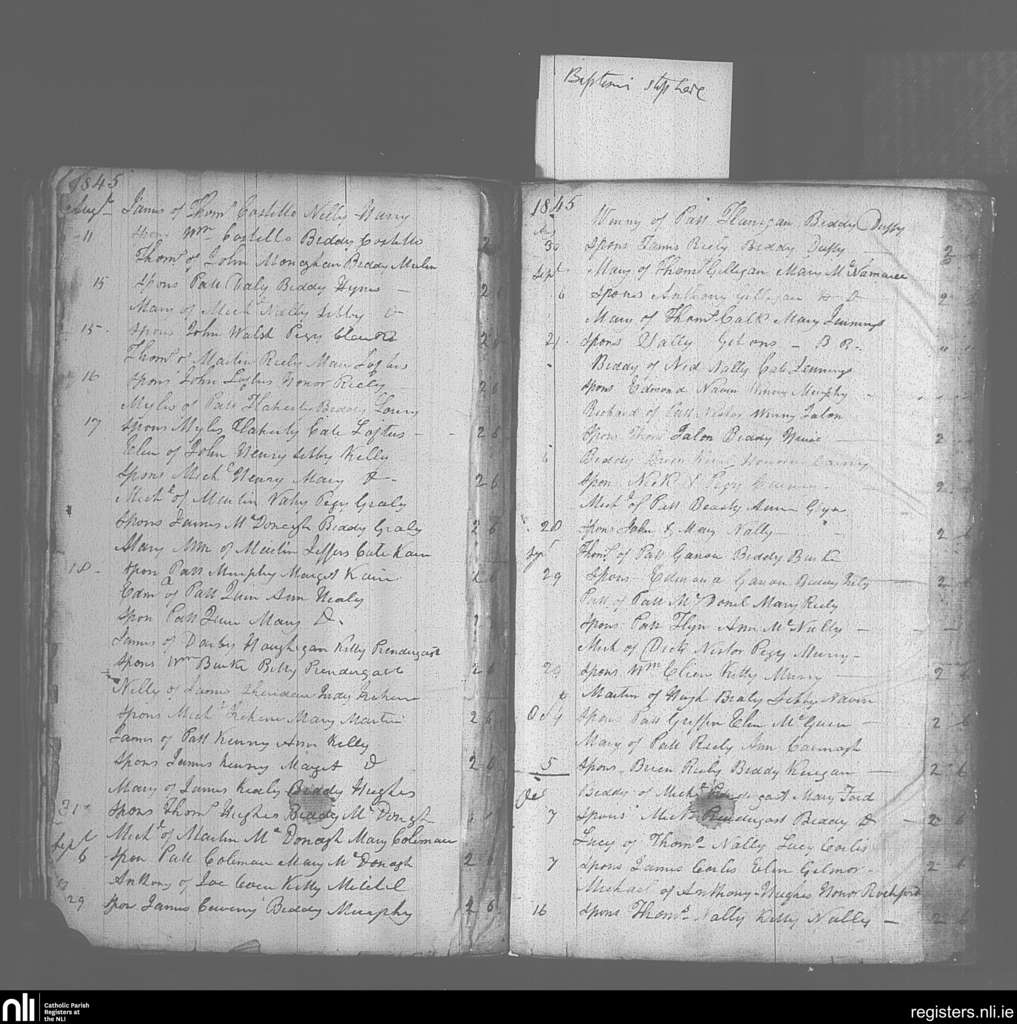 Baptisms stop here
1845
Augst James of Thoms Costello Nelly Harry
11 Spon Wm Costello Beddy Costello 2
Thoms of John Monaghan Beddy Mulin
15 Spons Patt Daly Beddy Hynes — 2 6
Mary of Michl Nally Sibby Do
15 - Spons John Walsh Pegy Clearke 2 6
Thoms of Martin Riely Mary Loftus
16 Spons John Loftus Honor Riely 2 6
Myles of Patt Flaherty Beddy Lowry
17 Spons Myles Flaherty Cate Loftus - 2 6
Elen of John Henry Sibby Kelly
Spons Michl Henry Mary Do - 2 6
Michl of Martin Vahy Pegy Graly
Spons James McDonagh Beddy Graly 2 6
Mary Ann of Martin Jeffers Cate Kain
18 - Spon Patt Murphy Marget Kain 2 6
Edmd of Patt Quin Ann Healy
Spon Patt Quin Mary Do -
James of Darby Haughegan Kitty Rendergast
Spons Wm Burke Betty Prendergast 2 6
Nelly of James Sheridan Judy
Spons Michl Mary Martin 2 6
James of Patt Kenny Ann Kelly
Spons James Kenny Marget Do 2 6
Mary of James Kealy Beddy Hughes
31 Spons Thoms Hughes Beddy McDongh
Sept Michl of Martin McDonagh Mary Coleman
6 Spon Patt Coleman Mary McDonagh 2 6
Anthony of Joe Coen Kitty Mitchel
29 Spon James Beddy Murphy 2 6
1845
Winny of Patt Flanigan Beddy Duffy
30 Spons James Riely Beddy Duffy 2
Sept Mary of Thoms Gilligan Mary McNamara
6 Spons Anthony Gilligan 2
Mary of Thoms Mary Jennings
21 Spons Hally Gibons - B R -
Beddy of Ned Nally Cate Jennings
Spons Edmond Navin Winny Murphy
Richard of Patt Nestor Winny Talon
Spon Thoms Talon Beddy 2
Beddy
Spon Nick & Pegy 2
Michl of Patt Beasty Ann Glyn
28 Spons John & Mary Nally 2 6
Thoms of Patt Ganon Biddy Burke
29 Spons Edmond Ganon Beddy 2 6
Patt of Patt McDonel Mary Riely
Spons Patt Flyn Ann McNally —
Mich of Nestor Pegy Murry -
29 Spons Wm Kitty Murry — 2 6
Martin of Hugh Bealy Sibby Navin
Oct 4 Spons Patt Griffin Elen McGuin — 2 6
Mary of Patt Riely Ann Cavnagh
5 Spons Brien Riely Beddy Keegan — 2 6
Oct Beddy of Michl Prendergast Mary Ford
7 Spons Michl Prendergast Beddy Do — 2 6
Lucy of Thoms Nally Lucy Corles
7 Spons James Corles Elen Gilmor - 2 6
Michael of Anthony Hughes Honor Rochford
16 Spons Thoms Nally Kitty Nally — 2 6
nli
Catholic Parish
Registers at
the NLI
registers.nli.ie